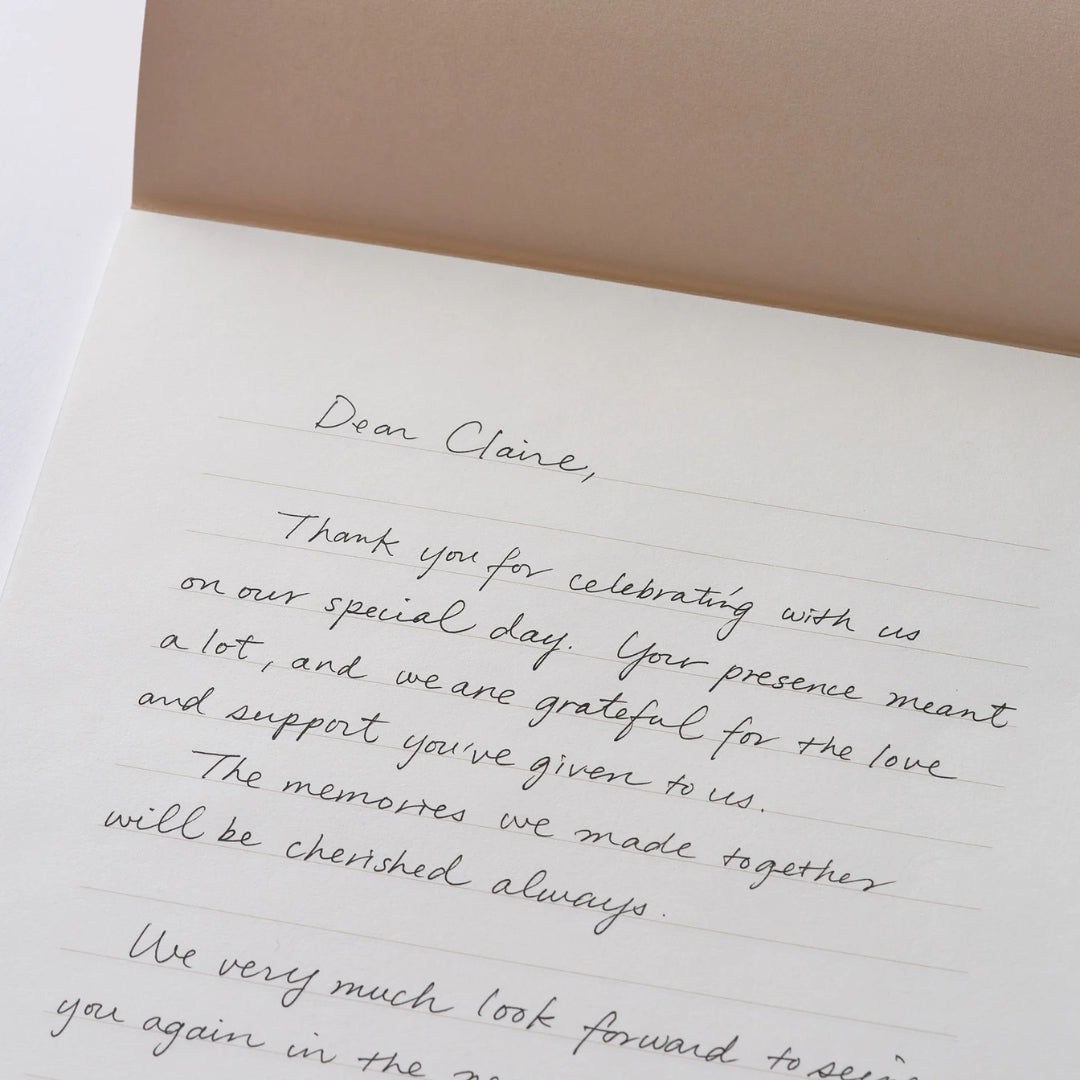 Dear Claire,
Thank you for celebrating with us
on our special day. Your presence meant
a lot, and we are grateful for the love
and support you've given to us.
The memories we made together
will be cherished always.
We very much look forward to
you again in the